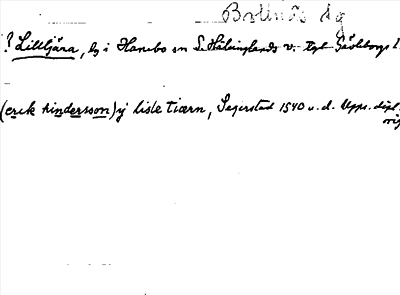 Bollnäs sg
? Lilltjära, by i Hanebo sn S. Hälsinglands v. tgl Gävleborgs l.
(erick hindersson) ÿ lisle tiærn, Segerstad 1540 u. d. Upps. dipl.
orig